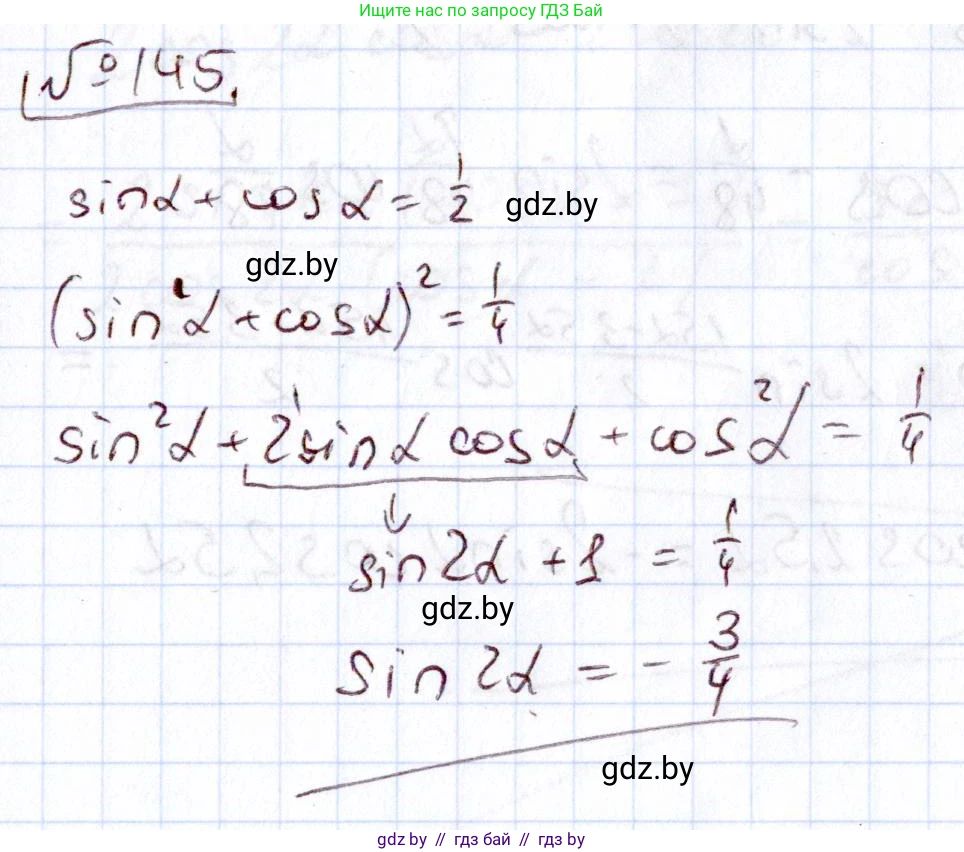 Ищите нас по запросу ГДЗ Бай
№ 145.
sinα + cosα = 1/2 gdz.by
gdz.by
(sinα + cosα)² = 1/4
sin²α + 2sinα cosα + cos²α = 1/4
↓
sin2α + 1 = 1/4
gdz.by
sin2α = - 3/4
gdz.by
gdz by // гдз бай // gdz by